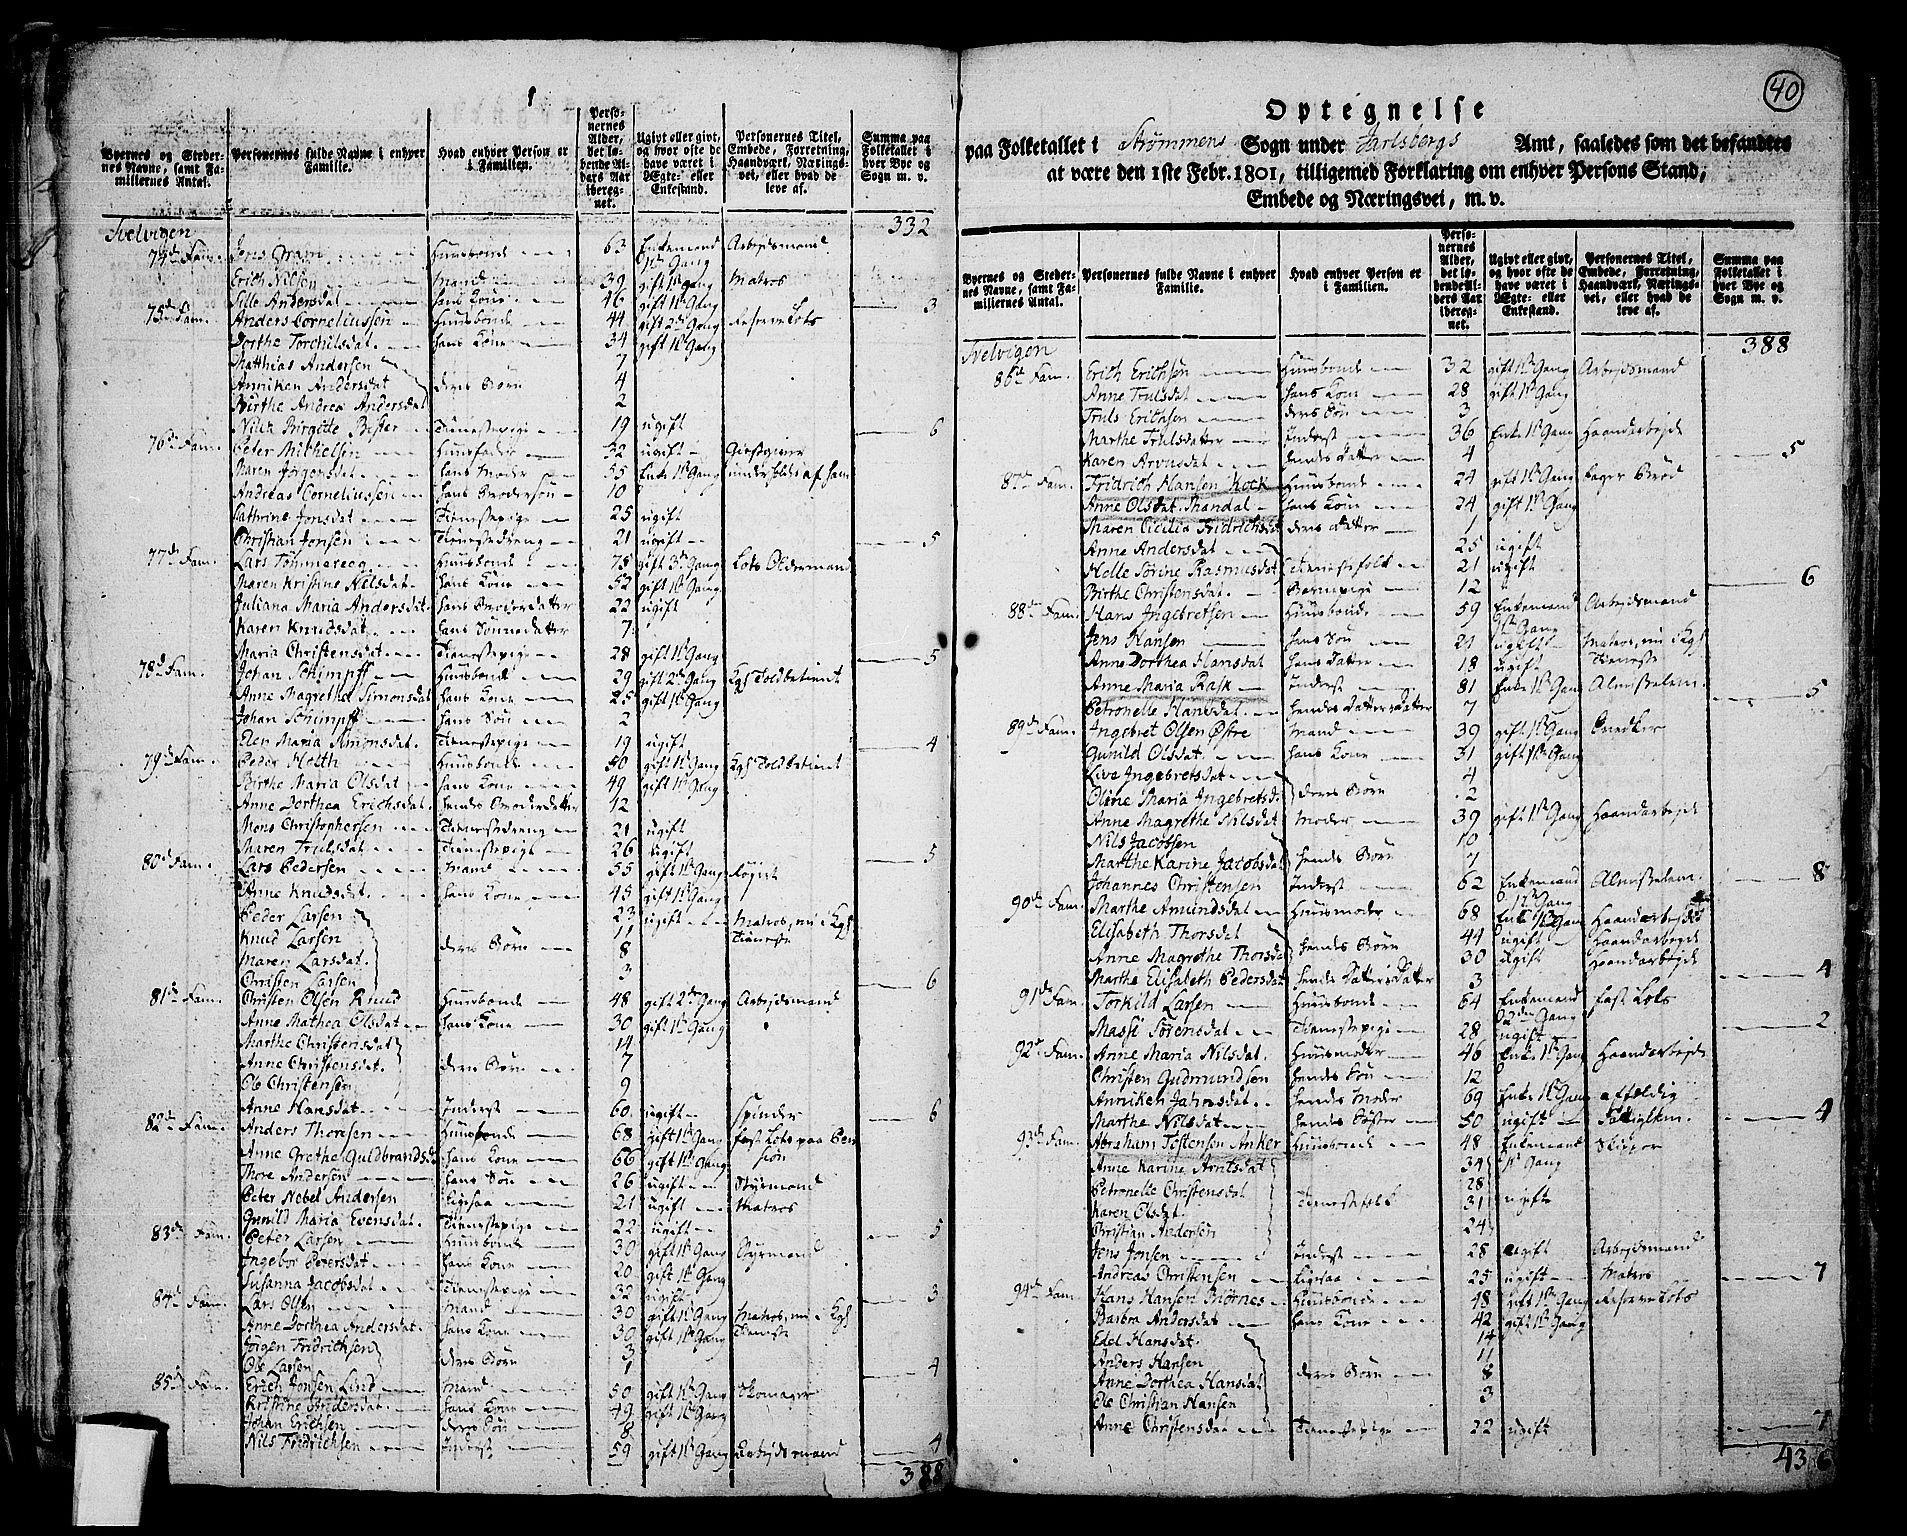 Byernes og Stedernes Navne, samt Familiernes Antal. | Personernes fulde Navne i enhver Familie. | Hvad enhver Person er i Familien. | Personernes Alder, det løbende Alders Aar iberegnet. | Ugivt eller givt, og hvor ofte de have været i Ægte- eller Enkestand. | Personernes Titel, Embede, Forretning, Haandværk, Næringsvei, eller hvad de leve af. | Summa paa Folketallet i hver Bye og Sogn m. v.
Svelvigen 332
74de Fam. Jens Dram Huusbonde 63 Enkemand 1ste Gang Arbejdsmand
Erich Nilsen mand 39 gift 1ste gang Matros
Sille Andersdat hans Kone 46 gift 1ste Gang 3
75de Fam. Anders Corneliussen Huusbonde 44 gift 2den Gang Reserve Lots
Dorthe Torchilsdat hans Kone 34 gift 1ste Gang
Matthias Andersen 7
Anniken Andersdat deres Børn 4
Birthe Andrea Andersdat 2
Nilia Birgitte Bister Tienestepige 19 ugift 6
76de Fam. Peter Michelsen Huusfader 32 ugift Giestgiver
Maren Jørgensdat hans Moder 55 Enke 1ste Gang underholdes af ham
Andreas Corneliussen hans Brodersøn 10
Cathrine Jonsdat Tienestepige 25 ugift
Christian Jonsen Tienestedreng 21 ugift 5
77de Fam. Lars Tømmeraas Huusbonde 75 gift 3de Gang Lots Oldermand
Maren Kristine Nelsdat hans Kone 52 gift 1ste Gang
Juliana Maria Andersdat hans Broderdatter 22 ugift
Karen Knudsdat hans Sønnedatter 7
Maria Christensdat Tienestepige 28 gift 1ste Gang 5
78de Fam. Johan Schimpff Huusbonde 29 gift 2den Gang Kgl Toldbetient
Anne Magretha Simonsdat hans Kone 25 gift 1ste Gang
Johan Schimpff hans Søn 2
Elen Maria Amonsdat Tienestepige 19 ugift 4
79de Fam. Peder Holth Huusbonde 50 gift 1ste Gang Kgl Toldbetient
Birthe Maria Olsdat hans Kone 49 gift 1ste Gang
Anne Dorthea Erichsdat hendes Broderdatter 12
Mons Christophersen Tienestedreng 21 ugift
Maren Trulsdat Tienestepige 26 ugift 5
80de Fam. Lars Pedersen Mand 55 gift 1ste Gang
Anne Knudsdat hans Kone 45 gift 1ste Gang
Peder Larsen 23 ugift Matros, nu i Kgl Tieneste
Knud Larsen 11
Maren Larsdat deres Børn 8
Christen Larsen 3 6
81de Fam. Christen Olsen Knud Huusbonde 48 gift 2den Gang Arbejdsmand
Anne Mathea Olsdat hans Kone 30 gift 1ste Gang
Marthe Christensdat 14
Anne Christensdat deres Børn 7
Ole Christensen 9
Anne Hansdat Inderst 60 ugift spinder 6
82de Fam. Anders Thoresen Huusbonde 68 gift 1ste Gang fast Lots paa Pension
Anne Grethe Guldbrandsd hans Kone 66 gift 1ste Gang
Thore Andersen hans Søn 26 ugift Styrmand
Peter Nebel Andersen ligesaa 21 ugift Matros
Gunild Maria Evensdat Tienestepige 22 ugift 5
83de Fam. Peter Larsen Huusbonde 30 gift 1ste Gang Styrmand
Ingebor Petersdat hans Kone 20 gift 1ste Gang
Susanna Jacobsdat Tienestepige 32 ugift 3
84de Fam. Lars Olsen Mand 30 gift 1ste Gang Matros, nu i Kgl Tieneste
Anne Dorthea Andersdat hans Kone 30 gift 1ste Gang
Jørgen Fridrichsen deres Børn 3
Ole Larsen 1 4
85de Fam. Erich Jonsen Lind Mand 50 gift 1ste Gang Skomager
Kristine Andersdat hans Kone 49 gift 1ste Gang
Johan Erichsen deres Søn 8
Nils Fridrichsen Inderst 59 gift 1ste Gang Arbejdsmand 4
388
40
Optegnelse
paa Folketallet i Strømmens Sogn under Jarlsbergs Amt, saaledes som det befandtes
at være den 1ste Febr. 1801, tilligemed Forklaring om enhver Persons Stand,
Embede og Næringsvei, m. v.
Byernes og Stedernes Navne, samt Familiernes Antal. | Personernes fulde Navne i enhver Familie. | Hvad enhver Person er i Familien. | Personernes Alder, det løbende Alders Aar iberegnet. | Ugivt eller givt, og hvor ofte de have været i Ægte- eller Enkestand. | Personernes Titel, Embede, Forretning, Haandværk, Næringsvei, eller hvad de leve af. | Summa paa Folketallet i hver Bye og Sogn m. v.
Svelvigen 388
86de Fam. Erich Erichsen Huusbonde 32 gift 1ste Gang Arbejdsmand
Anne Trulsdat hans Kone 28 gift 1ste Gang
Truls Erichsen deres Søn 3
Marthe Trulsdatter Inderst 36 Enke 1ste Gang Haandarbejde
Karen Arvusdat hendes Datter 4 5
87de Fam. Fridrich Hansen Kock Huusbonde 24 gift 1ste Gang bager Brød
Anne Olsdat Mandal hans Kone 24 gift 1ste Gang
Maren Cicilia Fridrichsdat deres datter 1
Anne Andersdat 25 ugift
Helle Sørine Rasmusdat Tienestefolk 21 ugift
Birthe Christensdat Barnepige 12 6
88de Fam. Hans Ingebretsen Huusbonde 59 Enkemand 1ste Gang Arbejdsmand
Jens Hansen hans Søn 21 ugift Matros, nu i Kgl Tieneste
Anne Dorthea Hansdat hans Datter 18 ugift
Anne Maria Rask Inderst 81 Enke 1ste Gang Almisselem
Petronelle Hansdat hendes Datterdatter 7 5
89de Fam. Ingebret Olsen Østre Mand 39 gift 1ste Gang Snedker
Gunild Olsdat hans Kone 31 gift 1ste Gang
Live Ingebretsdat 4
Oline Maria Ingebretsd deres Børn 2
Anne Magrethe Nilsdat Moder 39 gift 1ste Gang Haandarbejde
Nils Jacobsen 10
Marthe Karine Jacobsdat hendes Børn 7
Johannes Christensen Inderst 62 Enkemand 1ste Gang Almisselem 8
90de Fam. Marthe Amundsdat Huusmoder 68 Enke 1ste Gang Haandarbejde
Elisabeth Thorsdat 44 ugift Haandarbejde
Anne Magrethe Thorsda hendes Børn 30 ugift Haandarbejde
Marthe Elisabeth Pedersdat hendes Datterdatter 3 4
91de Fam. Torkild Larsen Huusbonde 64 Enkemand 2den Gang fast Lots
Massi Sørensdat Tienestepige 28 ugift 2
92de Fam. Anne Maria Nilsdat Huusmoder 46 Enke 1ste Gang Haandarbejde
Christen Gudmundsen hendes Søn 12
Anniken Jahrsdat hendes Moder 69 Enke 1ste Gang affældig
Marthe Nilsdat hendes Søster 50 ugift 4
93de Fam. Abraham Tostensøn Anker Huusbonde 48 Enkemand 1ste Gang Skipper
Anne Karine Arntsdat 34
Petronelle Christensdat 28
Karen Olsdat Tienestefolk 31 ugifte
Christian Andersen 24
Jens Jonsen Inderst 28 ugift Arbejdsmand
Andreas Christensen ligesaa 25 ugift Matros 7
94de Fam. Hans Hansen Biørnes Huusbonde 48 gift 1ste Gang Reserve Lots
Barbra Andersdat hans Kone 42 gift 1ste Gang
Edel Hansdat 14
Anders Hansen 11
Anne Dorthea Hansdat deres Børn 8
Ole Christian Hansen 3
Anne Christensdat Tienestepige 22 ugift 7
436